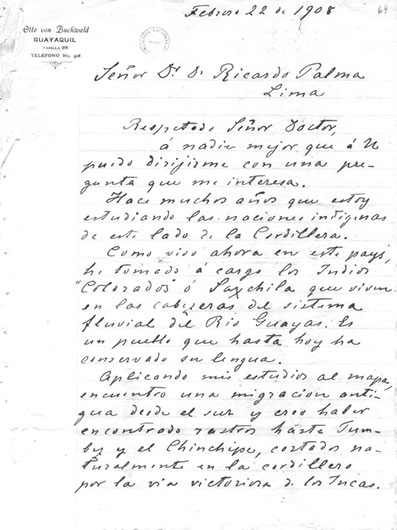 Febrero 22 de 1908
64
Otto von Buchwald
GUAYAQUIL
CASILLA
TELÉFONO No.
Señor Dr. Dn Ricardo Palma
Lima
Respetado Señor Doctor,
á nadie mejor que á U
puedo dirijirme con una pre-
gunta que me interesa.
Hace muchos años que estoy
estudiando las naciones indigenas
de este lado de la Cordillera.
Como vivo ahora en este pays,
he tomado á cargo los Indios
"Colorados" ó Saxchila que viven
en las cabezeras del sistema
fluvial del Rio Guayas. Es
un pueblo que hasta hoy ha
conservado su lengua.
Aplicando mis estudios al mapa,
encuentro una migracion anti-
gua desde el sur y creo haber
encontrado rastros hasta Tum-
bez y el Chinchipe, cortados na-
turalmente en la cordillera
por la via victoriosa de los Incas.